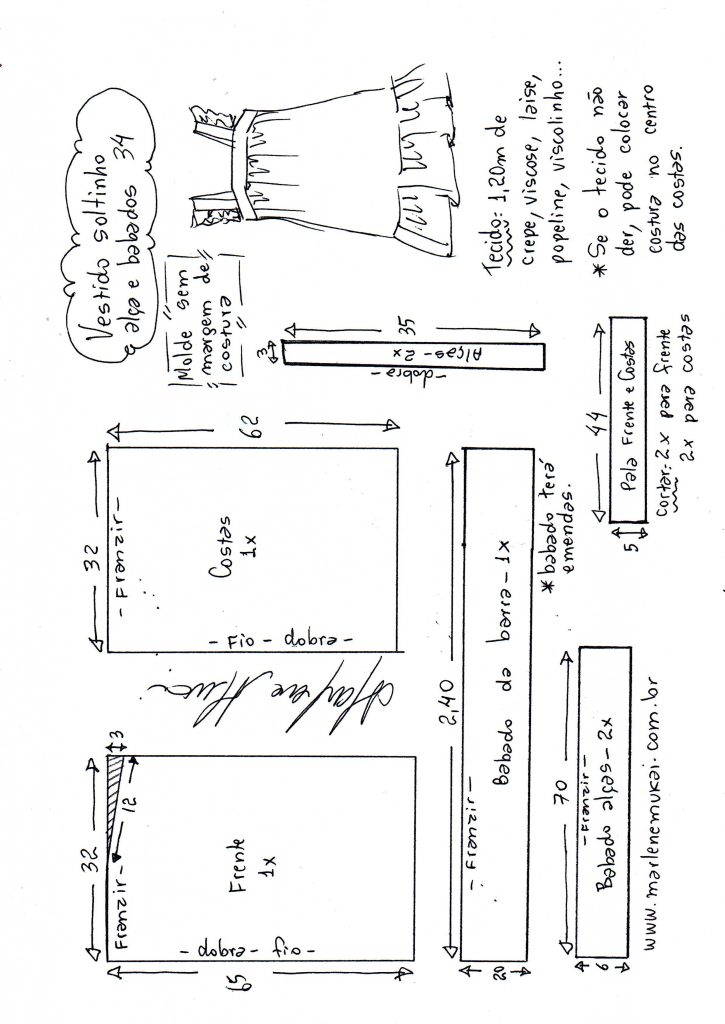 Vestido soltinho
alça e babados 34
Molde sem
margem de
costura
Tecido: 1,20m de
crepe, viscose, laise,
popeline, viscolinho...
* Se o tecido não
der, pode colocar
costura no centro
das costas.
65
32
- Franzir -
12
3
Frente
1x
- fio - dobra -
Marlene Mukai
32
62
- Franzir -
Costas
1x
- Fio - dobra -
3
35
Alças - 2x
- dobra -
2,40
20
- Franzir -
Babado da barra - 1x
* babado terá
emendas.
70
9
- Franzir -
Babado alças - 2x
44
5
Pala Frente e Costas
cortar: 2x para frente
2x para costas
www.marlenemukai.com.br